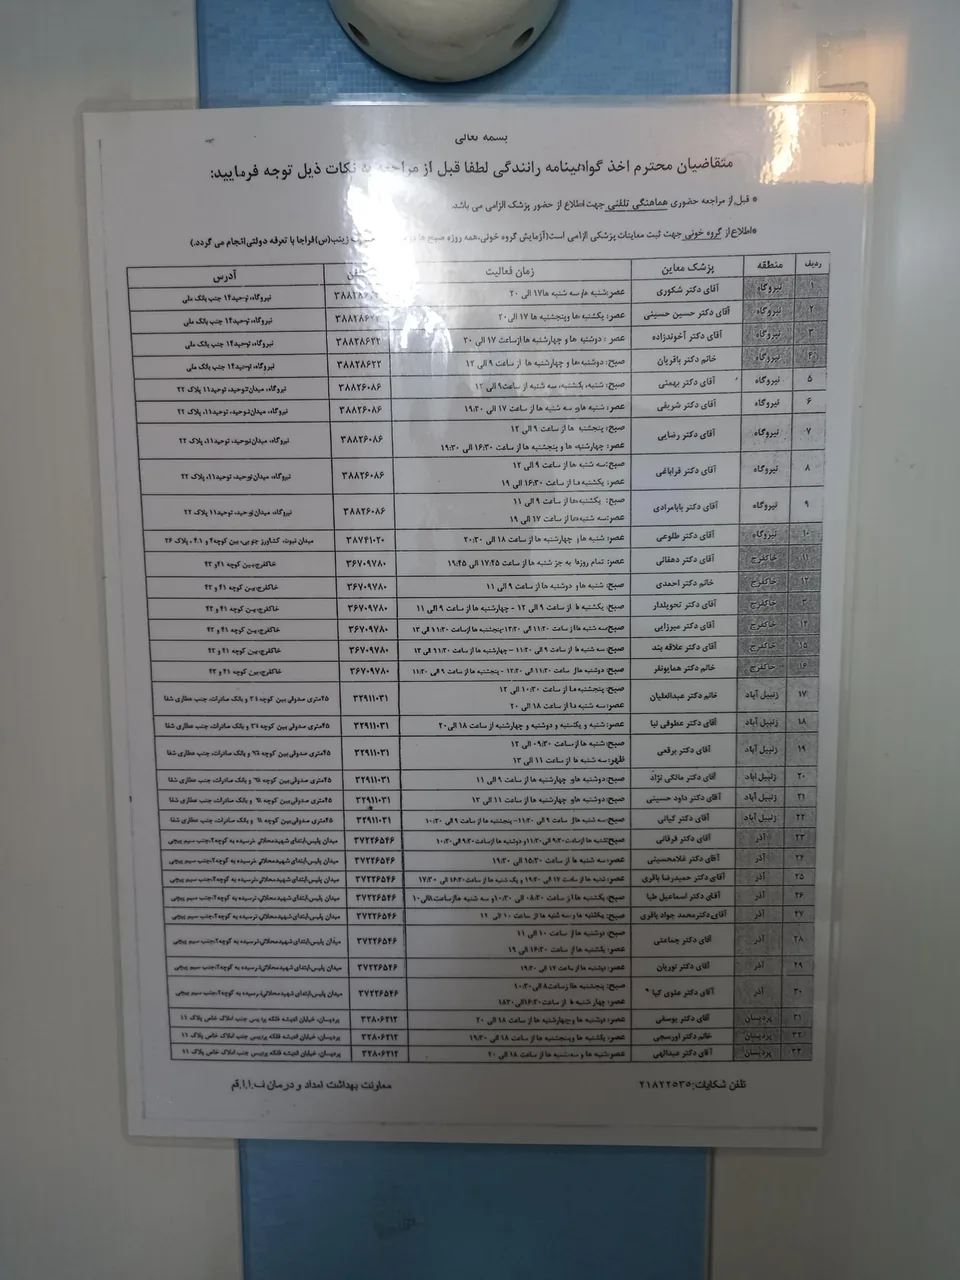 بسمه تعالی
متقاضیان محترم اخذ گواهینامه رانندگی لطفا قبل از مراجعه به نکات ذیل توجه فرمایید:
* قبل از مراجعه حضوری هماهنگی تلفنی جهت اطلاع از حضور پزشک الزامی می باشد.
*اطلاع از گروه خونی جهت ثبت معاینات پزشکی الزامی است(آزمایش گروه خونی،همه روزه صبح ها زینب(س)فراجا با تعرفه دولتی انجام می گردد.)
ردیف منطقه پزشک معاین زمان فعالیت آدرس
۱ نیروگاه آقای دکتر شکوری عصر:شنبه ها،سه شنبه ها۱۷ الی ۲۰ نیروگاه، توحید۱۴ جنب بانک ملی
۲ نیروگاه آقای دکتر حسین حسینی عصر: یکشنبه ها وپنجشنبه ها ۱۷ الی۲۰ نیروگاه، توحید۱۴ جنب بانک ملی
۳ نیروگاه آقای دکتر آخوندزاده عصر : دوشنبه ها و چهارشنبه ها ازساعت ۱۷ الی ۲۰ ۳۸۸۲۸۶۲۲ نیروگاه، توحید۱۴ جنب بانک ملی
۴ نیروگاه خانم دکتر باقریان صبح: دوشنبه ها و چهارشنبه ها از ساعت ۹ الی ۱۲ ۳۸۸۲۸۶۲۲ نیروگاه، توحید۱۴ جنب بانک ملی
۵ نیروگاه آقای دکتر بهمئی صبح: شنبه، یکشنبه، سه شنبه از ساعت۹ الی ۱۲ ۳۸۸۲۶۰۸۶ نیروگاه، میدان توحید، توحید۱۱ پلاک ۲۲
۶ نیروگاه آقای دکتر شریفی عصر: شنبه هاو سه شنبه ها از ساعت ۱۷ الی ۱۹:۳۰ ۳۸۸۲۶۰۸۶ نیروگاه، میدان توحید، توحید۱۱، پلاک ۲۲
۷ نیروگاه آقای دکتر رضایی صبح: پنجشنبه ها از ساعت ۹ الی ۱۲
عصر: چهارشنبه ها و پنجشنبه ها از ساعت ۱۶:۳۰ الی ۱۹:۳۰ ۳۸۸۲۶۰۸۶ نیروگاه، میدان توحید، توحید۱۱، پلاک ۲۲
۸ نیروگاه آقای دکتر قراباغی صبح:سه شنبه ها از ساعت ۹ الی ۱۲
عصر: یکشنبه ها از ساعت ۱۶:۳۰ الی ۱۹ ۳۸۸۲۶۰۸۶ نیروگاه، میدان توحید، توحید۱۱، پلاک ۲۲
۹ نیروگاه آقای دکتر بابامرادی صبح: یکشنبه ها از ساعت ۹ الی ۱۱
عصر:سه شنبه ها از ساعت ۱۷ الی ۱۹ ۳۸۸۲۶۰۸۶ نیروگاه، میدان توحید، توحید۱۱ پلاک ۲۲
۱۰ نیروگاه آقای دکتر طلوعی عصر: شنبه ها و چهارشنبه ها از ساعت ۱۸ الی ۲۰:۳۰ ۳۸۷۴۱۰۲۰ میدان نبوت، کشاورز جنوبی، بین کوچه۴ و ۴.۱، پلاک ۲۶
۱۱ خاکفرج آقای دکتر دهقانی عصر: تمام روزها به جز شنبه ها از ساعت ۱۷:۴۵ الی ۱۹:۴۵ ۳۶۷۰۹۷۸۰ خاکفرج،بین کوچه ۴۱و ۴۳
۱۲ خاکفرج خانم دکتر احمدی صبح: شنبه ها و دوشنبه ها از ساعت ۹ الی ۱۱ ۳۶۷۰۹۷۸۰ خاکفرج، بین کوچه ۴۱ و ۴۳
خاکفرج آقای دکتر تحویلدار صبح: یکشنبه ها از ساعت ۹ الی ۱۲ - چهارشنبه ها از ساعت ۹ الی ۱۱ ۳۶۷۰۹۷۸۰ خاکفرج، بین کوچه ۴۱ و ۴۳
۱۴ خاکفرج آقای دکتر میرزایی صبح:سه شنبه ها از ساعت ۱۱:۳۰ الی ۱۳:۳۰-پنجشنبه ها ازساعت ۱۱:۳۰ الی ۱۳ ۳۶۷۰۹۷۸۰ خاکفرج، بین کوچه ۴۱ و ۴۳
۱۵ خاکفرج آقای دکتر علاقه بند صبح: سه شنبه ها از ساعت ۹ الی ۱۱:۳۰ – چهارشنبه ها از ساعت ۱۱:۳۰ الی ۱۳ ۳۶۷۰۹۷۸۰ خاکفرج، بین کوچه ۴۱ و ۴۳
۱۶ خاکفرج خانم دکتر همایونفر صبح: دوشنبه ها از ساعت ۱۱:۳۰ الی ۱۲:۳۰ - پنجشنبه ها از ساعت ۹ الی ۱۱:۳۰ ۳۶۷۰۹۷۸۰ خاکفرج، بین کوچه ۴۱ و ۴۳
۱۷ زنبیل آباد خانم دکتر عبدالعلیان صبح: پنجشنبه ها از ساعت ۱۰:۳۰ الی ۱۲
عصر: سه شنبه ها از ساعت ۱۸ الی ۲۰ ۳۲۹۱۱۰۳۱ ۴۵متری صدوقی،بین کوچه و بانک صادرات، جنب عطاری شفا
۱۸ زنبیل آباد آقای دکتر عطوفی نیا عصر: شنبه و یکشنبه و دوشنبه و چهارشنبه از ساعت ۱۸ الی۲۰ ۳۲۹۱۱۰۳۱ ۴۵متری صدوقی،بین کوچه و بانک صادرات، جنب عطاری شفا
۱۹ زنبیل آباد آقای دکتر برقعی صبح: شنبه ها از ساعت ۰۹:۳۰ الی ۱۲
ظهر: سه شنبه ها از ساعت ۱۱ الی ۱۳ ۳۲۹۱۱۰۳۱ ۴۵متری صدوقی،بین کوچه و بانک صادرات، جنب عطاری شفا
۲۰ زنبیل آباد آقای دکتر مالکی نژاد صبح: دوشنبه هاو چهارشنبه ها از ساعت ۹ الی ۱۱ ۳۲۹۱۱۰۳۱ ۴۵متری صدوقی،بین کوچه و بانک صادرات، جنب عطاری شفا
۲۱ زنبیل آباد آقای دکتر داود حسینی صبح: دوشنبه هاو چهارشنبه ها از ساعت ۱۱ الی ۱۳ ۳۲۹۱۱۰۳۱ ۴۵متری صدوقی،بین کوچه و بانک صادرات، جنب عطاری شفا
۲۲ زنبیل آباد آقای دکتر کیانی صبح: سه شنبه ها از ساعت ۹ الی ۱۱:۳۰–پنجشنبه ها از ساعت ۹ الی ۱۰:۳۰ ۳۲۹۱۱۰۳۱ ۴۵متری صدوقی،بین کوچه و بانک صادرات، جنب عطاری شفا
۲۳ آذر آقای دکتر فرقانی صبح:شنبه هاازساعت ۹:۳۰ الی ۱۱:۳۰و دوشنبه ها ازساعت ۹:۳۰ الی ۱۰:۳۰ ۳۷۲۲۶۵۴۶ میدان پلیس،ابتدای شهیدمحلاتی،نرسیده به کوچه۲،جنب سیم پیچی
۲۴ آذر آقای دکتر غلامحسینی عصر: سه شنبه ها از ساعت ۱۵:۳۰ الی ۱۹:۳۰ ۳۷۲۲۶۵۴۶ میدان پلیس،ابتدای شهیدمحلاتی،نرسیده به کوچه۲،جنب سیم پیچی
۲۵ آذر آقای دکتر حمیدرضا باقری عصر: شنبه ها از ساعت ۱۷ الی ۱۹:۳۰ و یک شنبه ها از ساعت۱۶:۳۰ الی ۱۷:۳۰ ۳۷۲۲۶۵۴۶ میدان پلیس،ابتدای شهیدمحلاتی،نرسیده به کوچه۲،جنب سیم پیچی
۲۶ آذر آقای دکتر اسماعیل طبا صبح: یکشنبه ها از ساعت ۰۸:۳۰ الی ۱۰:۳۰و سه شنبه هاازساعت۸الی۱۰ ۳۷۲۲۶۵۴۶ میدان پلیس،ابتدای شهیدمحلاتی،نرسیده به کوچه۲،جنب سیم پیچی
۲۷ آذر آقای دکترمحمد جواد باقری صبح: یکشنبه ها و سه شنبه ها از ساعت ۱۰ الی ۱۲ ۳۷۲۲۶۵۴۶ میدان پلیس،ابتدای شهیدمحلاتی،نرسیده به کوچه۲،جنب سیم پیچی
۲۸ آذر آقای دکتر جماعتی صبح: دوشنبه ها از ساعت ۱۰ الی ۱۱
عصر: یکشنبه ها از ساعت ۱۶:۳۰ الی ۱۹ ۳۷۲۲۶۵۴۶ میدان پلیس،ابتدای شهیدمحلاتی،نرسیده به کوچه۲،جنب سیم پیچی
۲۹ آذر آقای دکتر نوریان عصر: دوشنبه ها از ساعت ۱۷ الی ۱۹:۳۰ ۳۷۲۲۶۵۴۶ میدان پلیس،ابتدای شهیدمحلاتی،نرسیده به کوچه۲،جنب سیم پیچی
۳۰ آذر آقای دکتر علوی کیا صبح: پنجشنبه ها ازساعت۸ الی ۱۰:۳۰
عصر: چهار شنبه ها از ساعت۱۶:۳۰الی ۱۸:۳۰ ۳۷۲۲۶۵۴۶ میدان پلیس،ابتدای شهیدمحلاتی،نرسیده به کوچه۲،جنب سیم پیچی
۳۱ پردیسان آقای دکتر یوسفی عصر: دوشنبه ها و چهارشنبه ها از ساعت ۱۸ الی ۲۰ ۳۲۸۰۶۲۱۲ پردیسان، خیابان اندیشه فلکه پردیس جنب املاک خاص پلاک ۱۱
۳۲ پردیسان خانم دکتر اورسجی عصر: یکشنبه ها وپنجشنبه ها از ساعت ۱۸ الی ۱۹:۳۰ ۳۲۸۰۶۲۱۲ پردیسان، خیابان اندیشه فلکه پردیس جنب املاک خاص پلاک ۱۱
۳۳ پردیسان آقای دکتر عبدالهی عصر:شنبه ها و سه شنبه ها از ساعت ۱۸ الی ۲۰ ۳۲۸۰۶۲۱۲ پردیسان، خیابان اندیشه فلکه پردیس جنب املاک خاص پلاک ۱۱
تلفن شکایات:۲۱۸۲۲۵۳۵ معاونت بهداشت امداد و درمان ف.ا.ا.قم